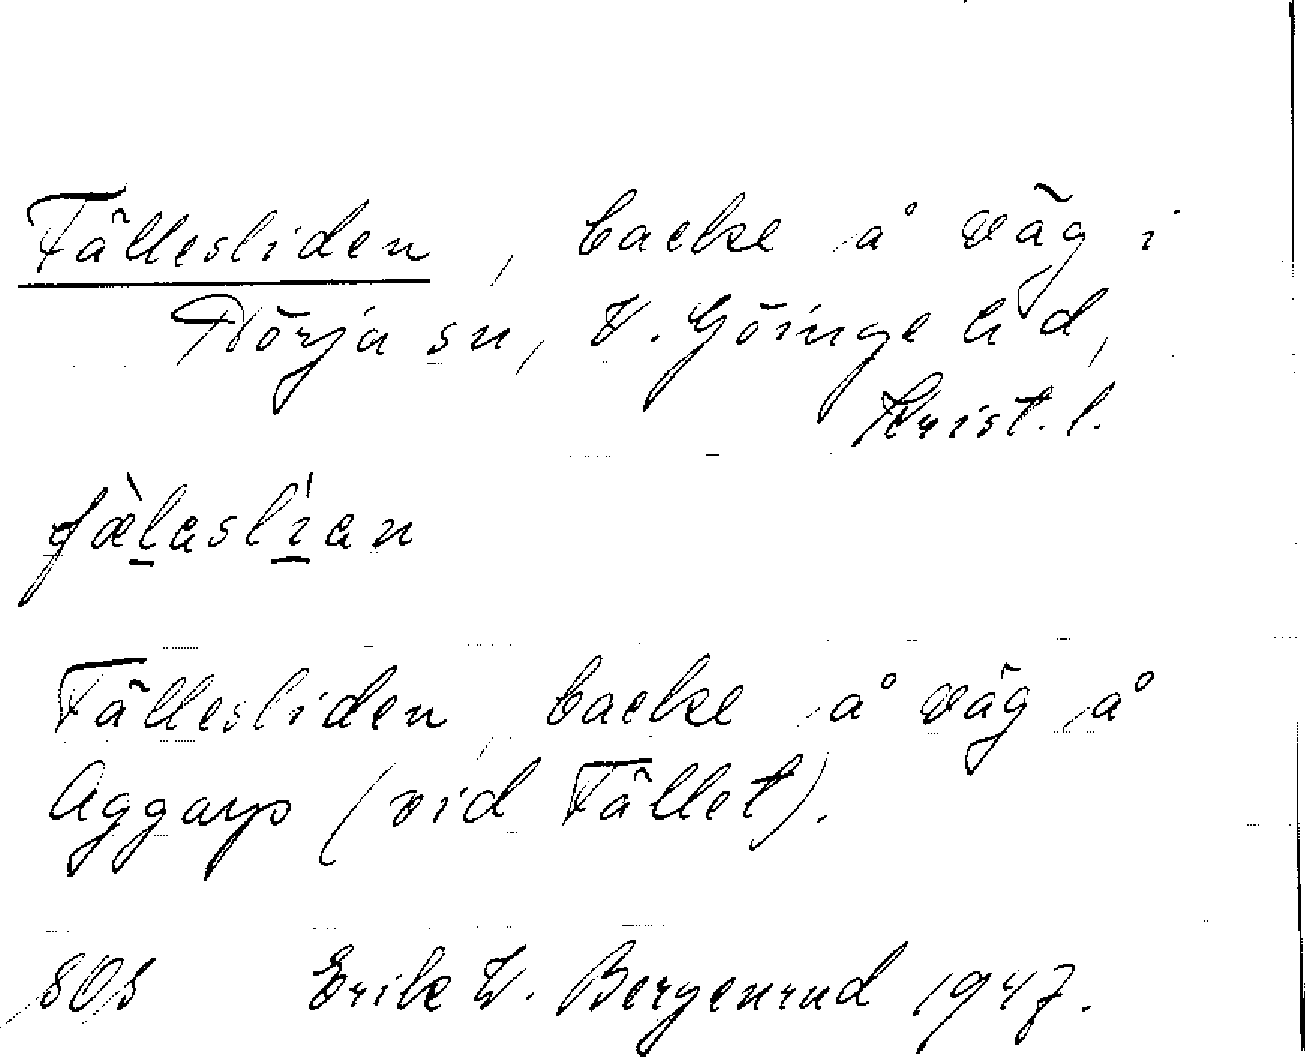 Fällesliden, backe å väg i
Nörja sn, V. Göinge hd,
Krist. l.
fæ̀lɐslíɐn
Fällesliden, backe å väg å
Aggarp (vid Fället).
SOS Erik W. Bergenrud 1947.